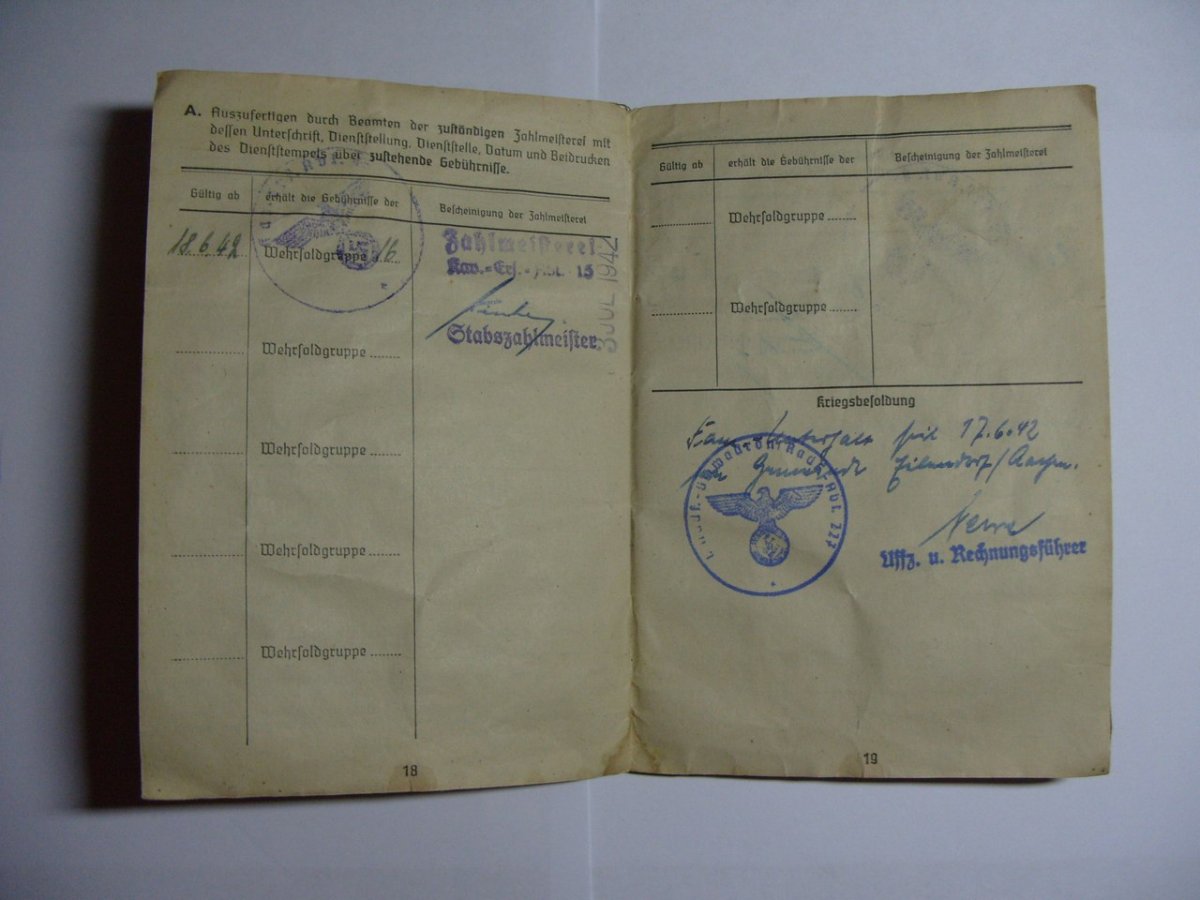 A. Auszufertigen durch Beamten der zuständigen Zahlmeisterei mit
dessen Unterschrift, Dienststellung, Dienststelle, Datum und Beidrucken
des Dienststempels über zustehende Gebührnisse.
Gültig ab erhält die Gebührnisse der Bescheinigung der Zahlmeisterei
18.6.42 Wehrsoldgruppe 16
Zahlmeisterei
Kav.-Ers.-Abt. 15
Stabszahlmeister
3 JUL 1942
Wehrsoldgruppe ........
Wehrsoldgruppe ........
Wehrsoldgruppe ........
Wehrsoldgruppe ........
18
Gültig ab erhält die Gebührnisse der Bescheinigung der Zahlmeisterei
Wehrsoldgruppe ........
Wehrsoldgruppe ........
Kriegsbesoldung
Fam. Unterhalt seit 17.6.42
Gemeinde Eilendorf/Aachen.
Abt. 227
Uffz. u. Rechnungsführer
19